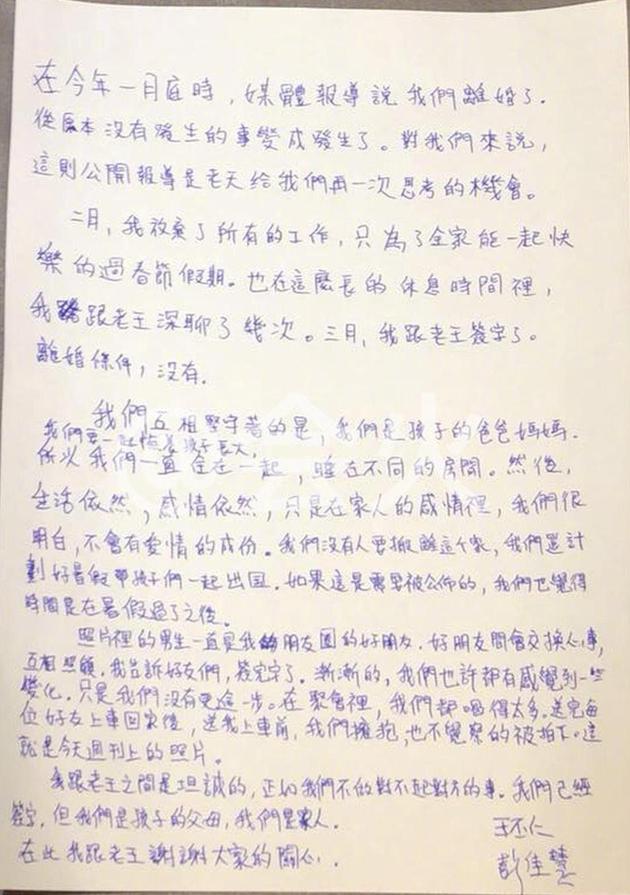 在今年一月底時，媒體報導說我們離婚了.
從原本沒有發生的事變成發生了。對我們來說，
這則公開報導是老天給我們再一次思考的機會。
二月，我放棄了所有的工作，只為了全家能一起快
樂的過春節假期。也在這麼長的休息時間裡，
我跟老王深聊了幾次。三月，我跟老王簽字了。
離婚條件，沒有.
我們互相堅守著的是，我們是孩子的爸爸媽媽.
我們要一起陪著孩子長大，
所以我們一直住在一起，睡在不同的房間。然後，
生活依然，感情依然，只是在家人的感情裡，我們很
明白，不會有愛情的成份。我們沒有人要搬離這個家，我們還計
劃好暑假帶孩子們一起出国．如果這是需要被公佈的，我們也覺得
時間是在暑假過了之後。
照片裡的男生一直是我朋友圈的好朋友．好朋友間會交換心事，
互相照顧，我告訴好友們，簽完字了．漸漸的，我們也許都有感覺到一些
變化．只是我們沒有更進一步。在聚會裡，我們都喝得太多，送完每
位好友上車回家後，送我上車前，我們擁抱，也不覺察的被拍下。這
就是今天週刊上的照片。
我跟老王之間是坦誠的，正如我們不做對不起對方的事。我們已經
簽字，但我們是孩子的父母，我們是家人．
王丕仁
在此我跟老王謝謝大家的關心．
彭佳慧